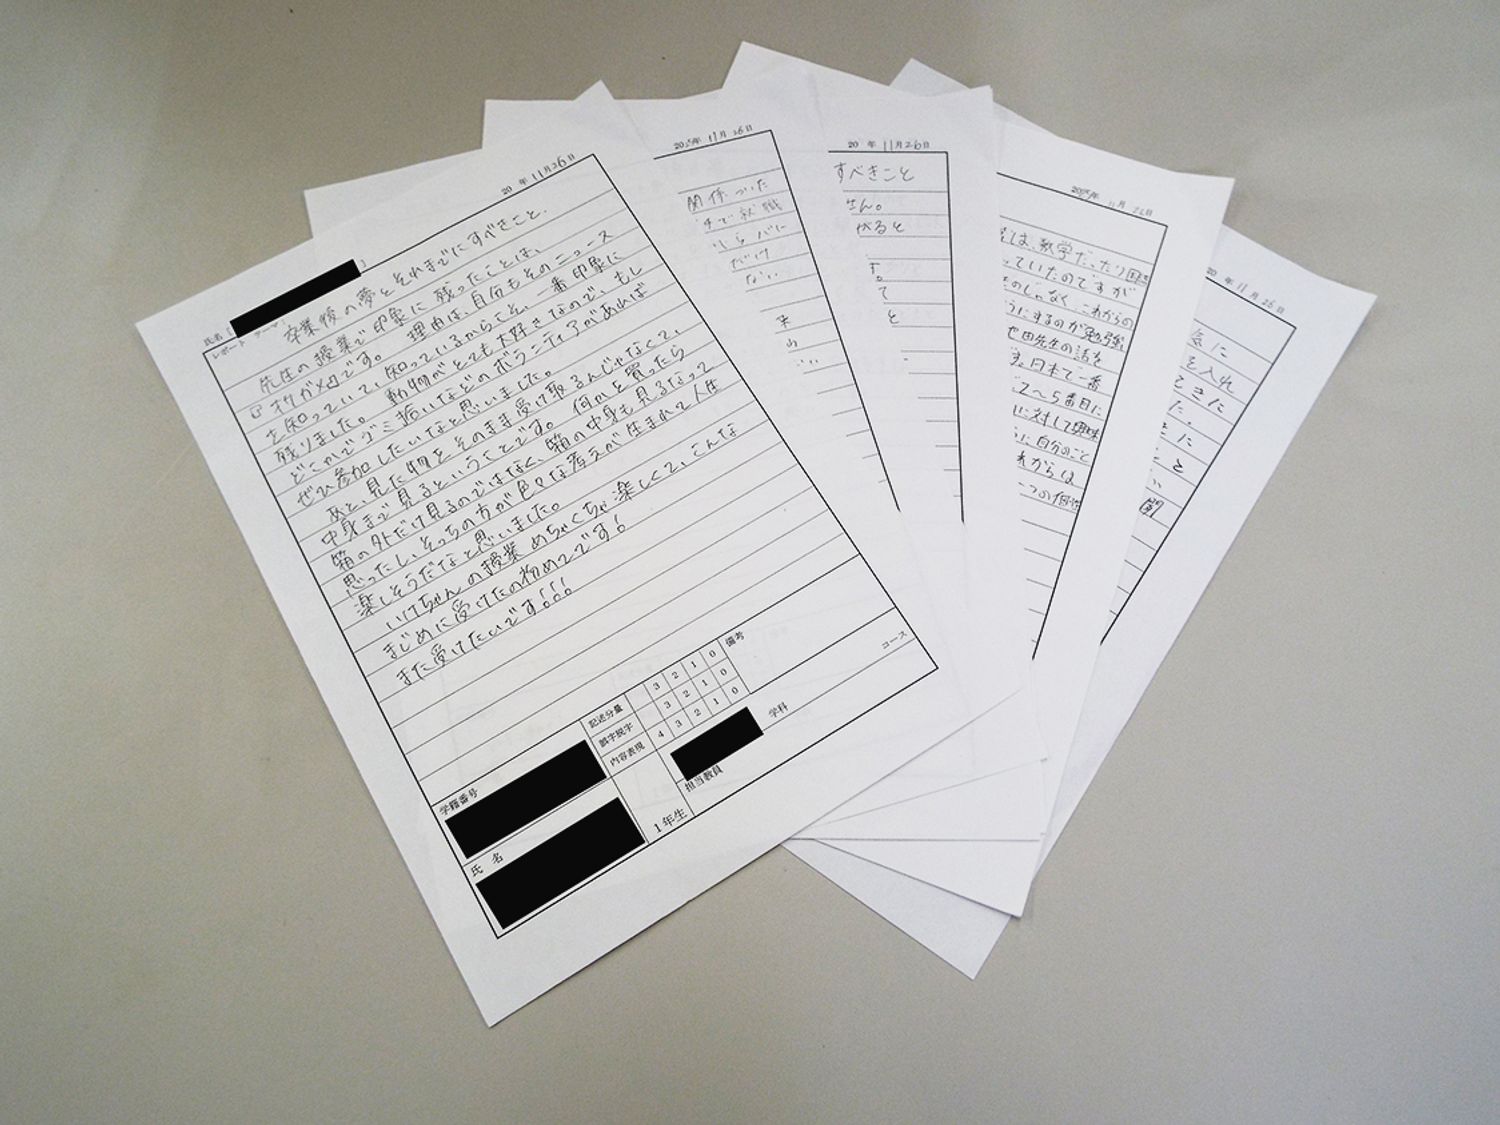 20 年 11月26日
氏名〔 〕
レポート テーマ
卒業後の夢とそれまでにすべきこと.
先生の授業で印象に残ったことは、
『オサガメ』です。理由は、自分もそのニュース
を知っていて、知っているからこそ、一番印象に
残りました。動物がとても大好きなので、もし
どこかでゴミ拾いなどのボランティアがあれば
ぜひ参加したいなと思いました。
あと、見た物をそのまま受け取るんじゃなくて、
中身まで見るということです。何かを買ったら
箱の外だけ見るのではなく、箱の中身も見るなって
思ったし、そっちの方が色々な考えが生まれて人生
楽しそうだなと思いました。
いけちゃんの授業めちゃくちゃ楽しくて、こんな
まじめに受けたの初めてです!
また受けたいです!!!
記述分量 3 2 1 0
誤字脱字 3 2 1 0
内容表現 4 3 2 1 0
備考
コース
学科
担当教員
1年生
学籍番号
氏 名
2025年 11月 26日
関係ついた
まで就職
だけ
ない
20 年 11月26日
すべきこと
せん。
がると
す。
て
と
2025年 11月 26日
は、数学だったり国語
っていたのですが
ものじゃなく、これからの
うにするのが勉強
池田先生の話を
す。日本で一番
て2〜5番目に
に対して興味
に自分のこと
れからは
一つの何
20 年 11月 26日
急に
を入れ
てきた
た.
きた
と